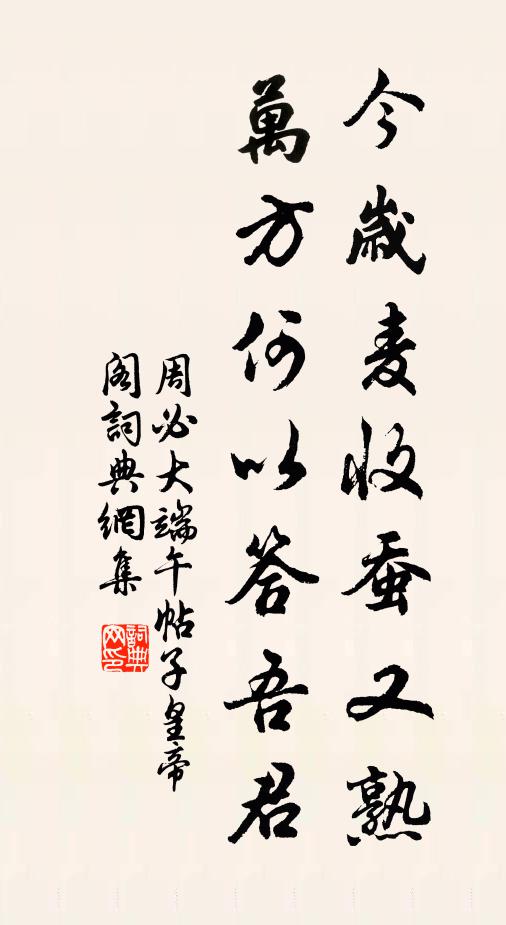 今歲麦收蚕又熟
萬方何以答吾君
周必大端午帖子皇帝
阁詞典網集
詞典网印